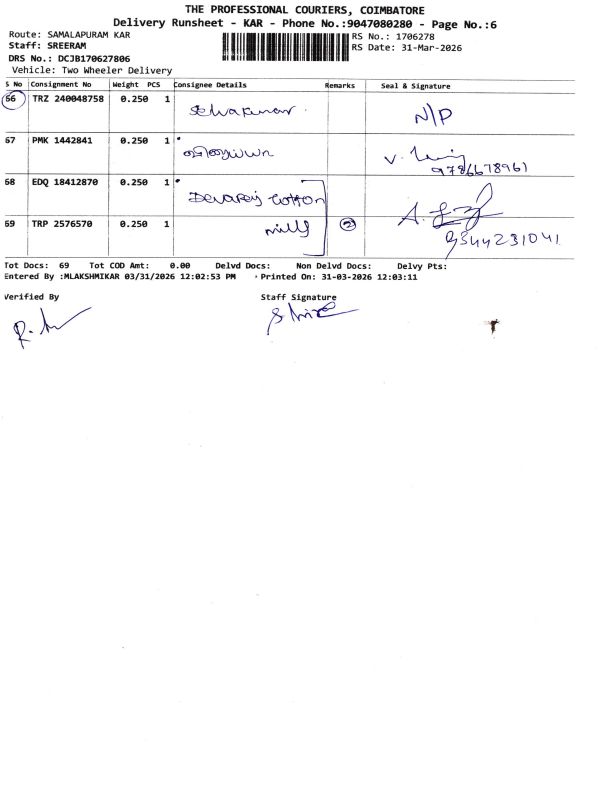 THE PROFESSIONAL COURIERS, COIMBATORE
Delivery Runsheet - KAR - Phone No.:9047080280 - Page No.:6
Route: SAMALAPURAM KAR
RS No.: 1706278
Staff: SREERAM
RS Date: 31-Mar-2026
DRS No.: DCJB170627806
Vehicle: Two Wheeler Delivery
S No Consignment No Weight PCS Consignee Details Remarks Seal & Signature
66 TRZ 240048758 0.250 1 Selvakumar N/P
67 PMK 1442841 0.250 1
9786678961
68 EDQ 18412870 0.250 1 Devaraj Cotton
69 TRP 2576570 0.250 1 mill 2
9344231041
Tot Docs: 69 Tot COD Amt: 0.00 Delvd Docs: Non Delvd Docs: Delvy Pts:
Entered By :MLAKSHMIKAR 03/31/2026 12:02:53 PM Printed On: 31-03-2026 12:03:11
Verified By Staff Signature